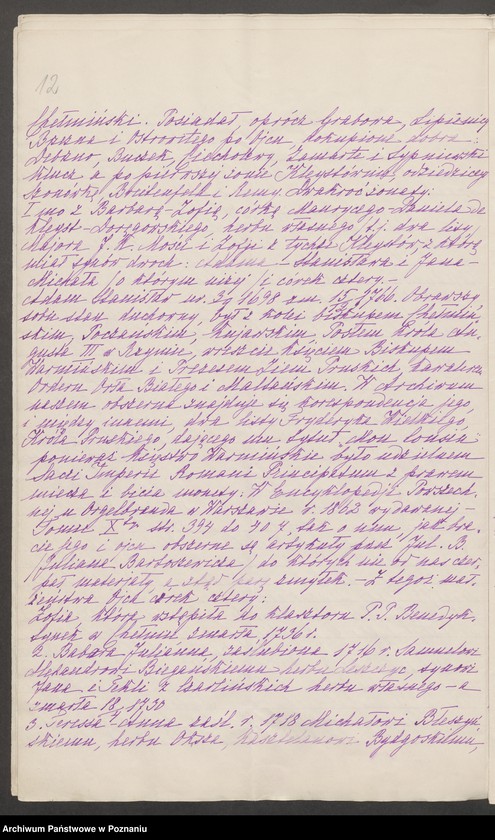 12
Chełmiński. Posiadał oprócz Grabowa, Lipienicy
Brzezna i Ostrowitego po Ojcu, dokupione dobra:
Debrzno, Buczek, Ciechocin, Zamarte i Sypniewski
klucz a po pierwszej żonie Kleystównie odziedziczy
Dwakroć żonaty:
I mo z Barbarą Zofią, córką Maurycego Daniela de
Kleyst herbu własnego /t.j. dwa lisy/
Majora J. K. Mości i Zofji z tychże Kleystów, z którą
miał synów dwóch: Adama-Stanisława i Jana-
Michała /o którym niżej/ i córek cztery.-
Adam Stanisław ur. 1698 zm. 1766. Obrawszy
sobie stan duchowny, był z kolei biskupem Chełmiń-
skim, Poznańskim, Kujawskim. Posłem Króla Au-
gusta III w Rzymie, wreszcie księciem Biskupem
Warmińskim i Prezesem Ziem Pruskich, kawalerem
Orderu Orła Białego i Maltańskim. W Archiwum
naszem obszerna znajduje się korespondencja jego
i między innemi, dwa listy Fryderyka Wielkiego
Króla Pruskiego, dającego mu tytuł "Mon Cousin"
ponieważ księstwo Warmińskie było udzielnem
Sacri Imperii Romani Principatum z prawem
miecza i bicia monety. W Encyklopedji Powszech-
nej u Orgelbranda w Warszawie r. 1862 wydawanej-
Tomie X str. 394 do 404, tak o nim, jak bra-
cie jego i ojcu obszerne są artykuły pana Jul. B.
/Juliana Bartoszewicza/ do których nie od nas czer-
pał materjały, a stąd parę zmyłek. - Z tegoż mał-
żeństwa Ojca córek cztery:
Zofia, która wstąpiła do klasztoru P.P. Benedyk-
tynek w Chełmnie zmarła 1736 r.
2. Barbara Julianna, zaślubiona 1716 r. Samuelowi
Alexandrowi Biegańskiemu herbu synowi
Jana i Tekli z Czarlińskich herbu własnego - a
zmarła 1730
3. Teressa Anna zaśl. r. 1718 Michałowi Błeszyń-
skiemu, herbu Oksza, kasztelanowi Bydgoskiemu,
Archiwum Państwowe w Poznaniu